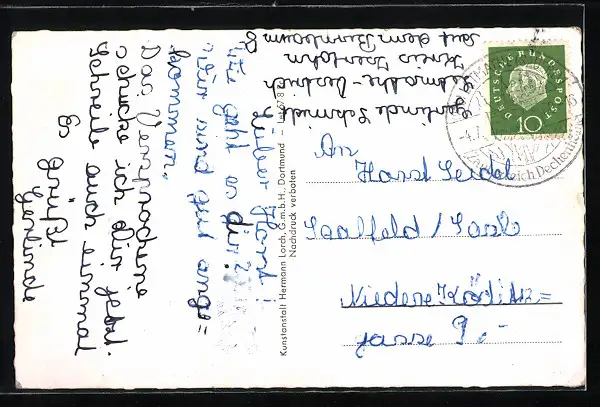 Lieber Horst!
Wie geht es dir?
Wir sind gut ange=
kommen.
Das Versprochene
schicke ich dir jetzt.
Schreibe auch einmal
Es grüßt
Gerlinde
Gerlinde Schmidt
Letmathe-Oestrich
Kreis Iserlohn
Auf dem Birnbaum 8
Kunstanstalt Hermann Lorch, G.m.b.H., Dortmund
Nachdruck verboten
DEUTSCHE BUNDESPOST
10
Dechenhöhle
An
Horst Seidel
Saalfeld / Saale
Niedere Köditz=
gasse 9.-